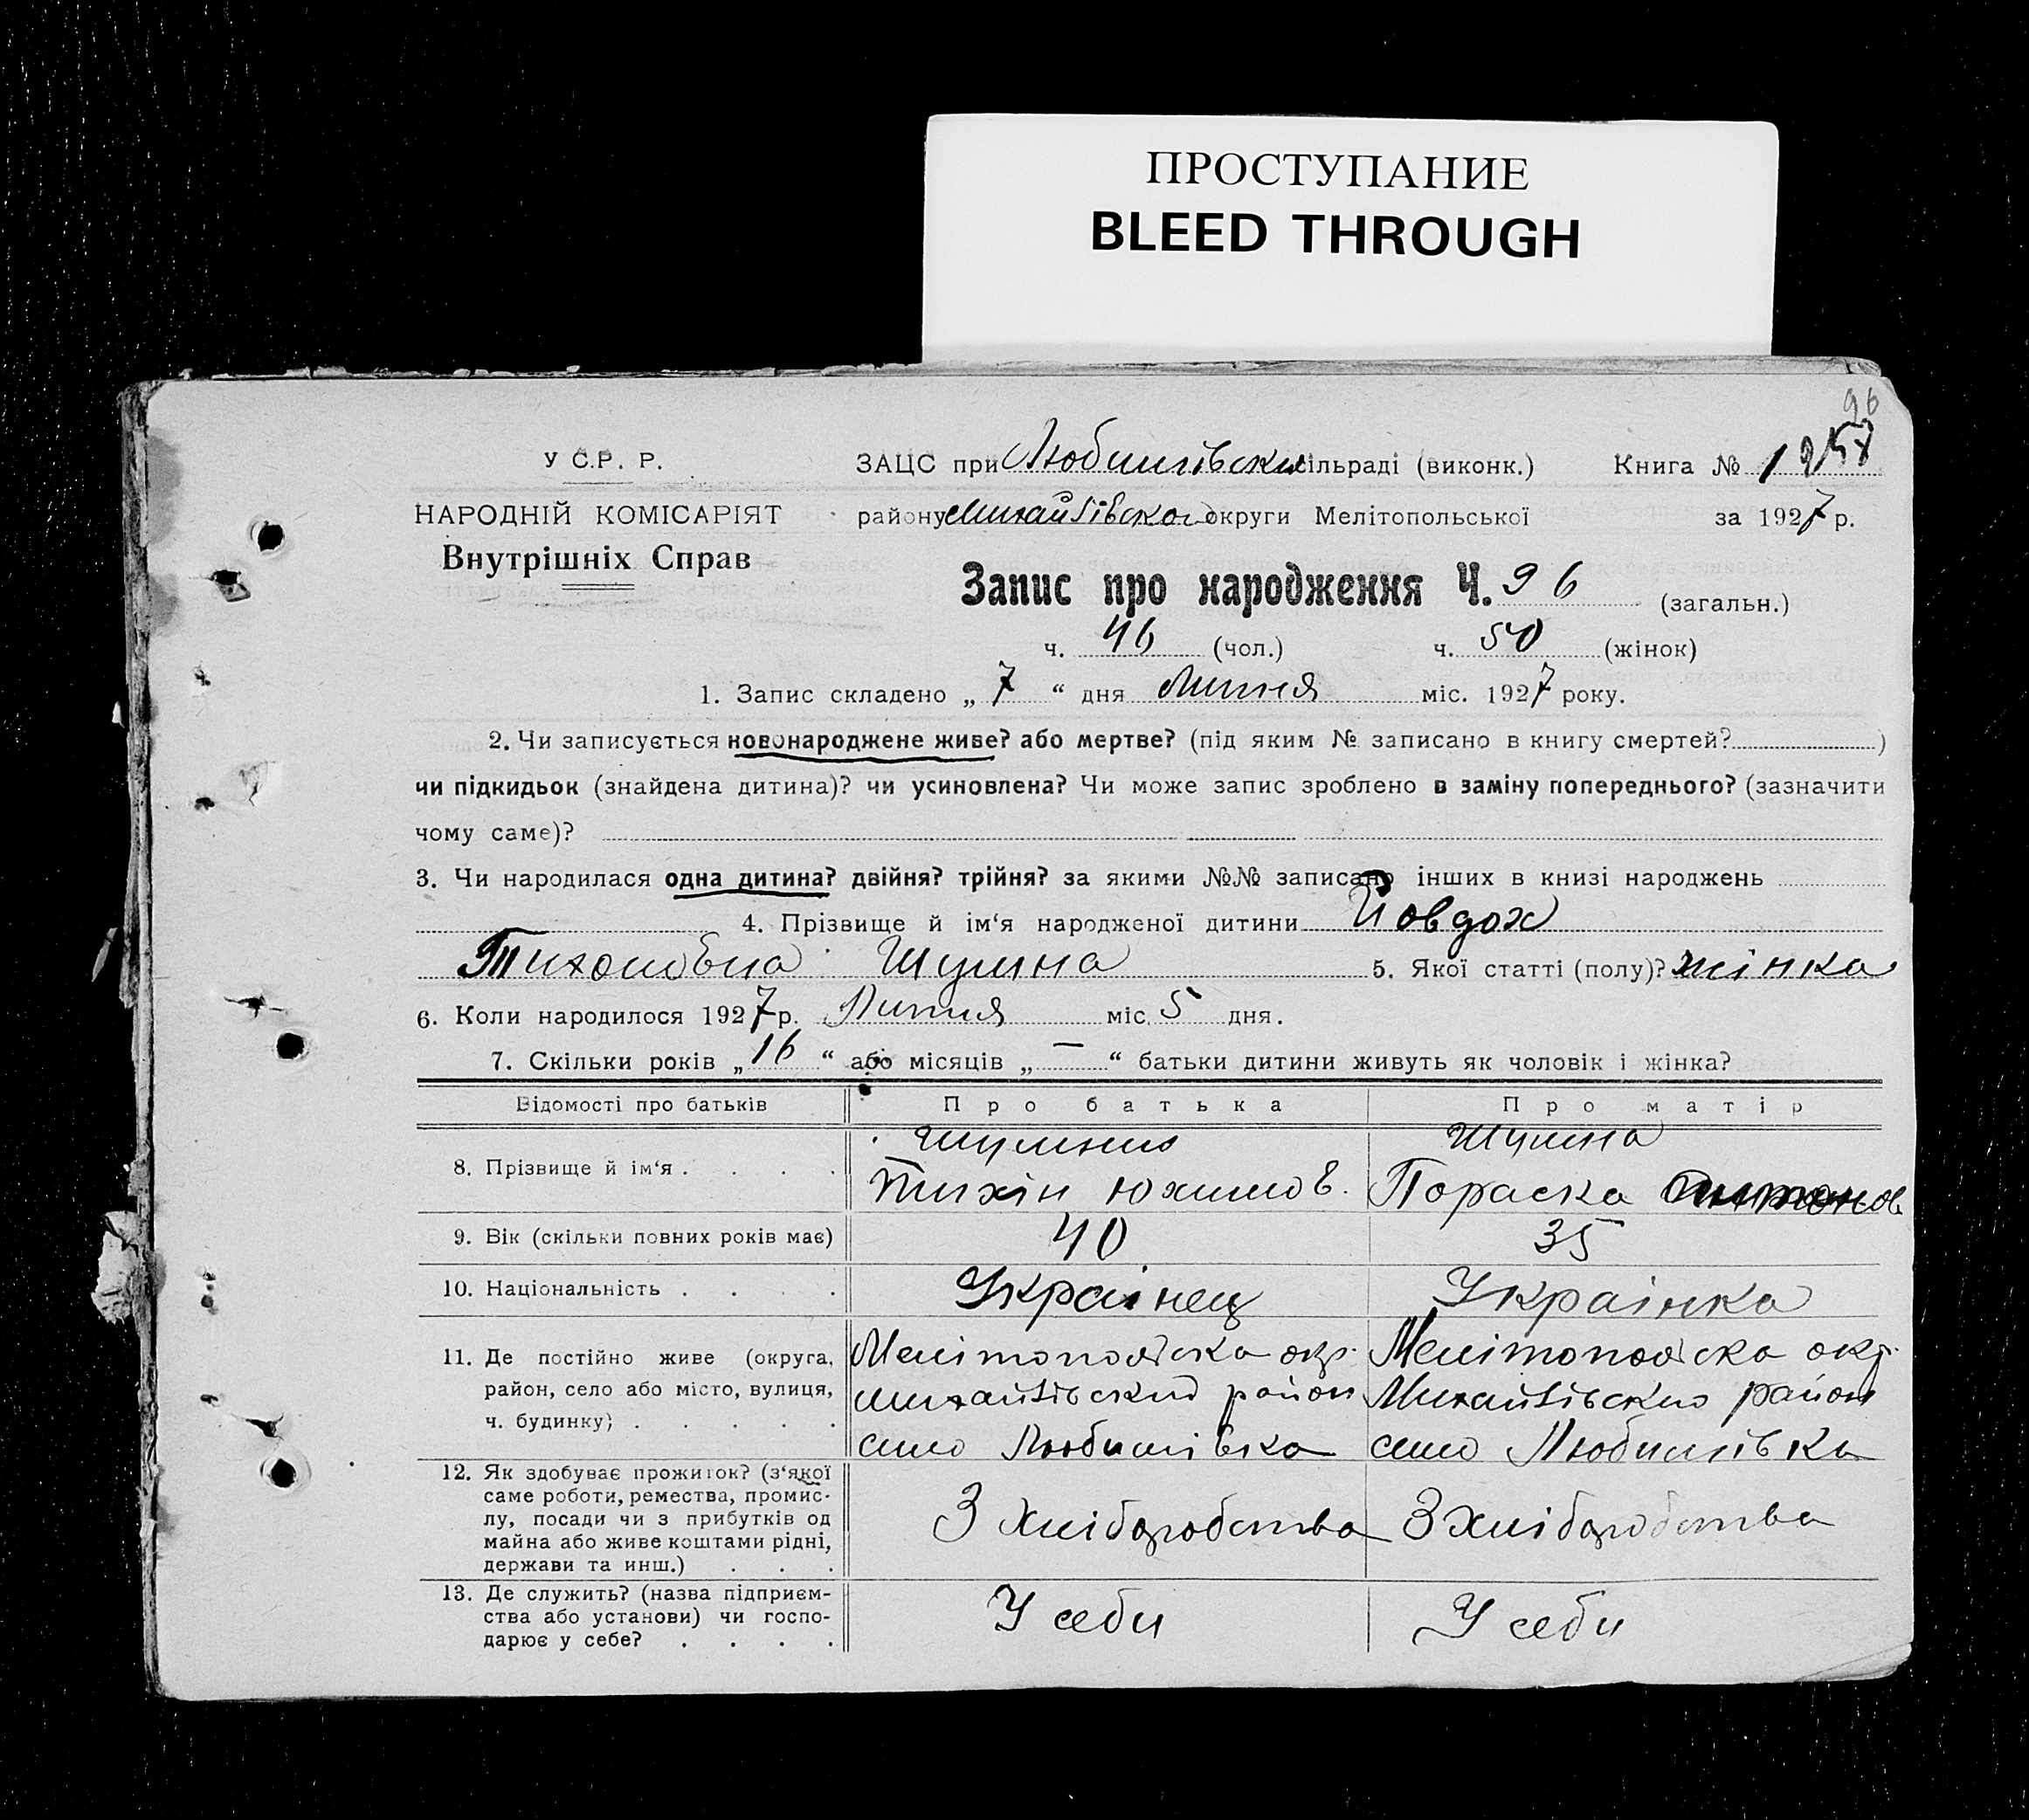 ПРОСТУПАНИЕ
BLEED THROUGH
96
У С.Р. Р.
ЗАЦС при Любимівски сільраді (виконк.) Книга №
НАРОДНІЙ КОМІСАРІЯТ
району Михайлівского округи Мелітопольської за 1927 р.
Внутрішніх Справ
Запис про народження Ч. 96 (загальн.)
ч. 46 (чол.) ч. 50 (жінок)
1. Запис складено „ 7 “ дня Липня міс. 1927 року.
2. Чи записується новонароджене живе? або мертве? (під яким № записано в книгу смертей? )
чи підкидьок (знайдена дитина)? чи усиновлена? Чи може запис зроблено в заміну попереднього? (зазначити
чому саме)?
3. Чи народилася одна дитина? двійня? трійня? за якими №№ записано інших в книзі народжень
4. Прізвище й ім‘я народженої дитини Йовдох
Тихоновна Шумна 5. Якої статті (полу)? жінка
6. Коли народилося 1927 р. Липня міс. 5 дня.
7. Скільки років „ 16 “ або місяців „ — “ батьки дитини живуть як чоловік і жінка?
Відомості про батьків Про батька Про матір
8. Прізвище й ім‘я . . . . Тихін Юхимов. Шумна Пораска
9. Вік (скільки повних років має) 40 35
10. Національність . . . . Украінец Украінка
11. Де постійно живе (округа, Мелітопольска окр. Мелітопольска окр.
район, село або місто, вулиця, Михайлівский район Михайлівский район
ч. будинку) . . . . . село Любимівка село Любимівка
12. Як здобуває прожиток? (з‘якої
саме роботи, ремества, промис-
лу, посади чи з прибутків од З хліборобства З хліборобства
майна або живе коштами рідні,
держави та инш.) . . .
13. Де служить? (назва підприєм-
ства або установи) чи госпо- У себи У себи
дарює у себе? . . . .